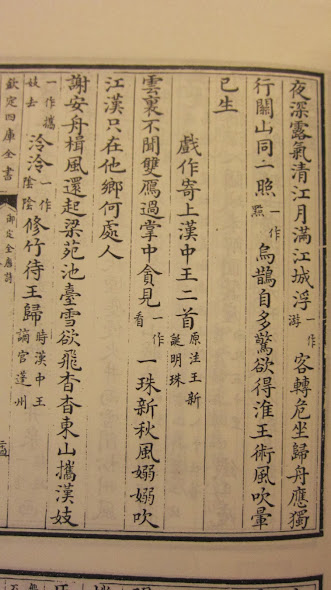 夜深露氣清江月滿江城浮一作游客轉危坐歸舟應獨
行關山同一照一作點烏鵲自多驚欲得淮王術風吹暈
已生
戲作寄上漢中王二首原注王新誕明珠
雲裏不聞雙鴈過掌中貪見一作看一珠新秋風嫋嫋吹
江漢只在他鄉何處人
謝安舟楫風還起梁苑池臺雪欲飛杳杳東山攜漢妓
一作攜妓去泠泠一作陰陰修竹待王歸時漢中王謫官蓬州
欽定四庫全書
御定全唐詩